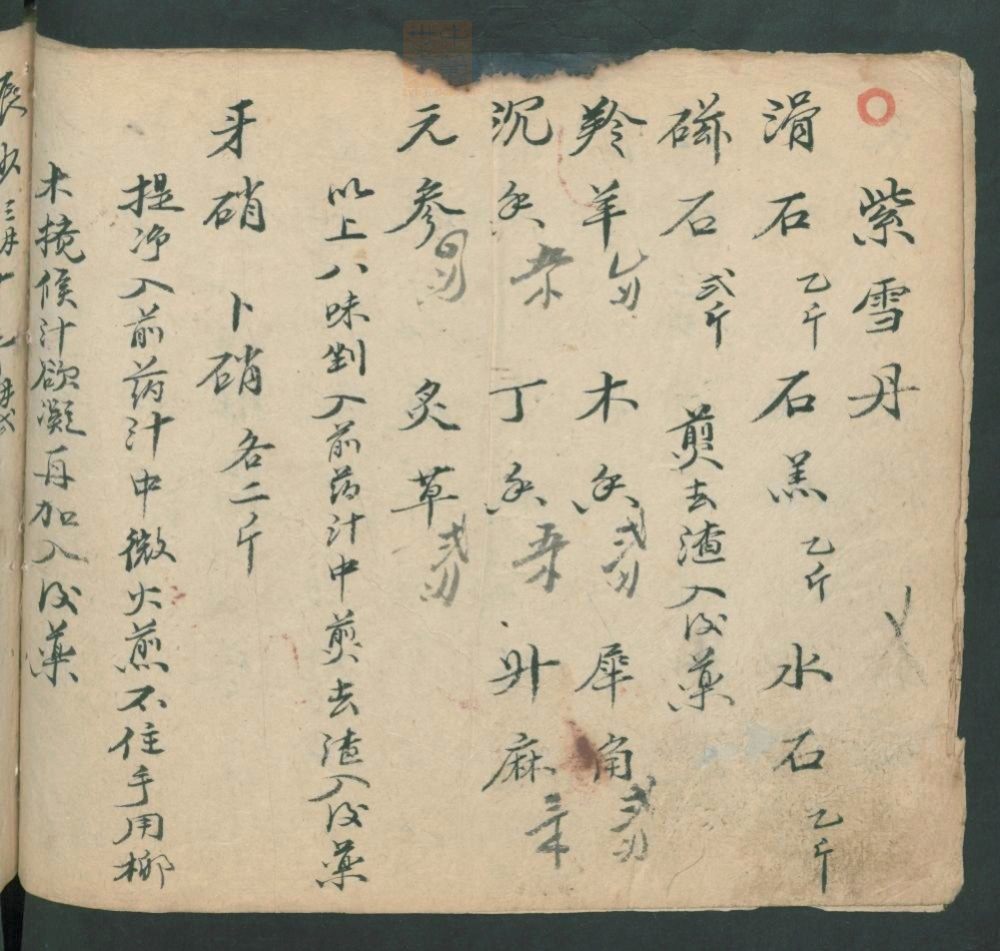 紫雪丹
滑石 乙斤 石羔 乙斤 水石 乙斤
磁石 弍斤 煎去渣入后藥
羚羊 木香 犀角
沉香 丁香 升麻
元參 炙草
以上八味剉入前药汁中煎去渣入后藥
牙硝 卜硝 各二斤
提净入前药汁中微火煎不住手用柳
木攪候汁欲凝再加入后藥